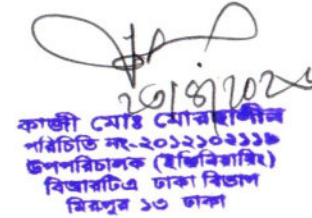 ২৩/৪/২০২৬
কাজী মোঃ মোরছালীন
পরিচিতি নং-২০১২১০২১১৯
উপপরিচালক (ইঞ্জিনিয়ারিং)
বিআরটিএ ঢাকা বিভাগ
মিরপুর ১৩ ঢাকা